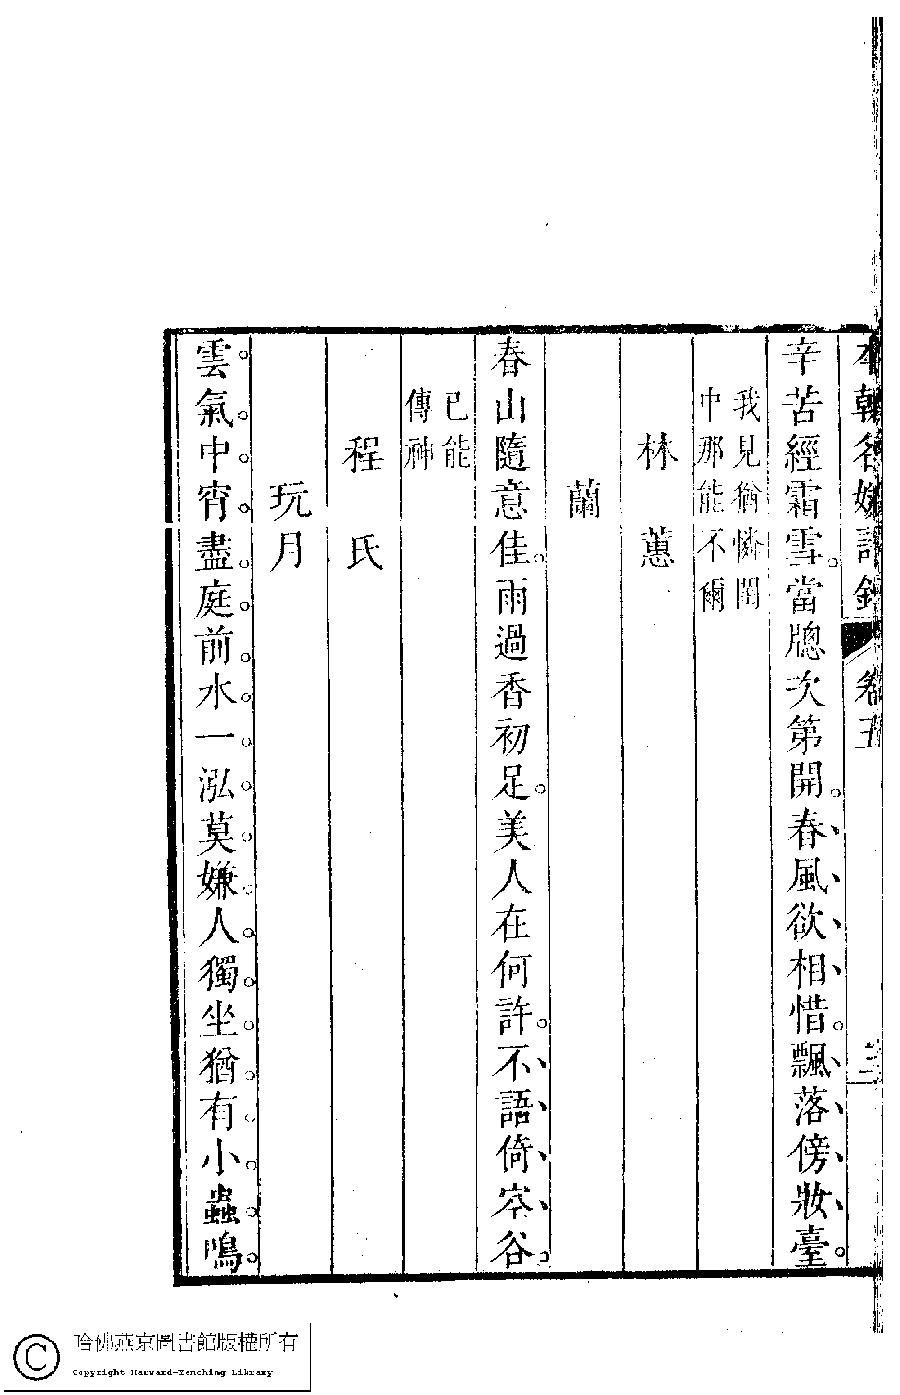 本朝名媛詩鈔 卷五 三
辛苦經霜雪。當牕次第開。春風欲相惜。飄落傍妝臺。
我見猶憐閨
中那能不爾
林蕙
蘭
春山隨意佳。雨過香初足。美人在何許。不語倚空谷。
已能
傳神
程氏
玩月
雲氣中宵盡庭前水一泓莫嫌人獨坐猶有小蟲鳴
哈佛燕京圖書館版權所有
Copyright Harvard-Yenching Library